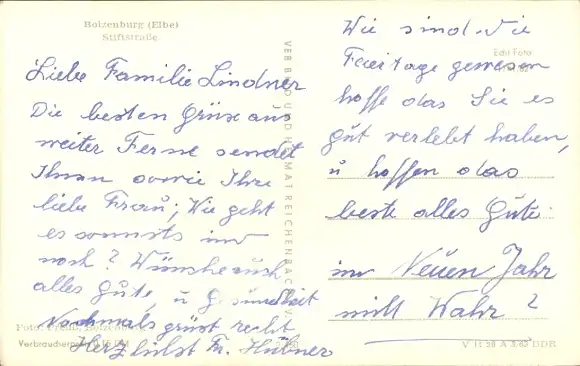 Boizenburg (Elbe)
Stiftstraße
Liebe Familie Lindner
Die besten Grüse aus
weiter Ferne sendet
Ihnen sowie Ihre
liebe Frau; Wie geht
es sonnsts
noch? Wünsche euch
alles Gute u Gesundheit
Nochmals grüst recht
Herzlichst Fr. Hübner
Verbraucherpreis
VEB BILD UND HEIMAT REICHENBACH I. V.
Wie sind die
Feiertage gewesen
hoffe das Sie es
gut verlebt haben,
u hoffen das
beste alles Gute
im Neuen Jahr
mill Wahr?
Echt Foto
DDR